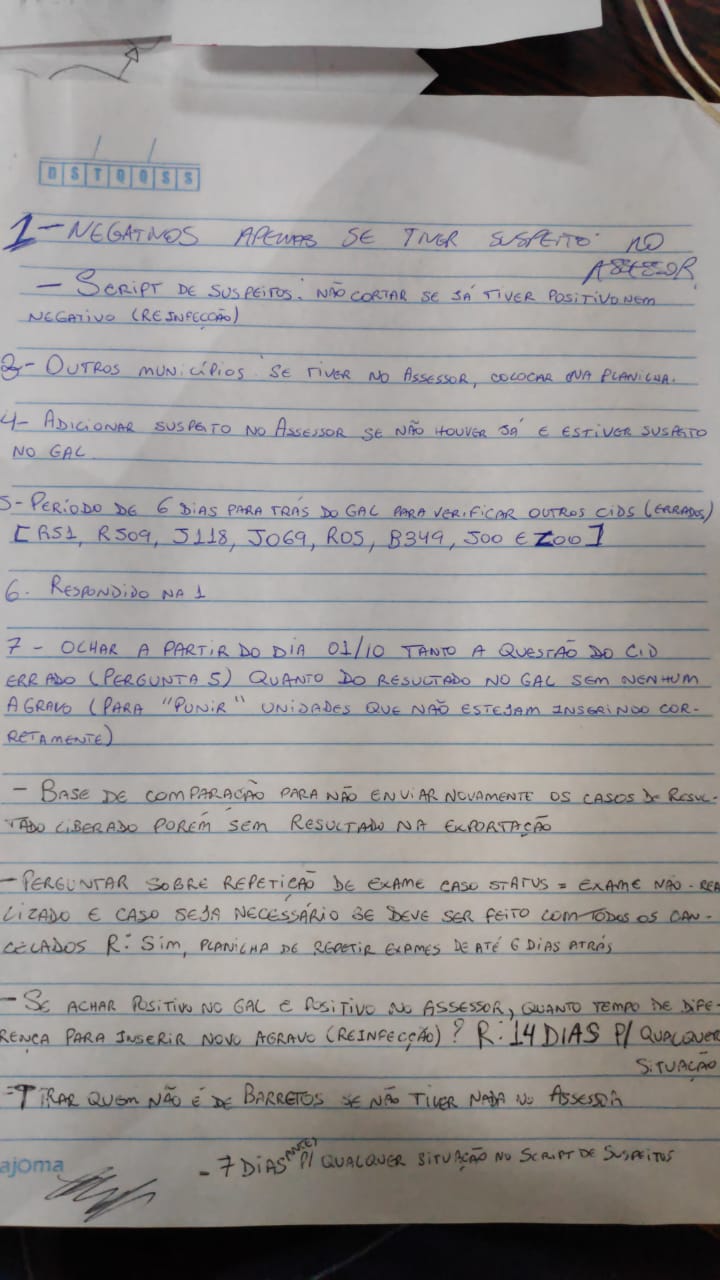 D S T Q Q S S
1 - NEGATIVOS APENAS SE TIVER SUSPEITO NO
ASSESSOR
- SCRIPT DE SUSPEITOS: NÃO CORTAR SE JÁ TIVER POSITIVO NEM
NEGATIVO (REINFECÇÃO)
3 - OUTROS MUNICÍPIOS SE TIVER NO ASSESSOR, COLOCAR NA PLANILHA.
4 - ADICIONAR SUSPEITO NO ASSESSOR SE NÃO HOUVER JÁ E ESTIVER SUSPEITO
NO GAL
5 - PERÍODO DE 6 DIAS PARA TRÁS DO GAL PARA VERIFICAR OUTROS CIDS (ERRADOS)
[R51, R509, J118, J069, R05, B349, J00 E Z00]
6. RESPONDIDO NA 1
7 - OLHAR A PARTIR DO DIA 01/10 TANTO A QUESTÃO DO CID
ERRADO (PERGUNTA 5) QUANTO DO RESULTADO NO GAL SEM NENHUM
AGRAVO (PARA "PUNIR" UNIDADES QUE NÃO ESTEJAM INSERINDO COR-
RETAMENTE)
- BASE DE COMPARAÇÃO PARA NÃO ENVIAR NOVAMENTE OS CASOS DE RESUL-
TADO LIBERADO PORÉM SEM RESULTADO NA EXPORTAÇÃO
- PERGUNTAR SOBRE REPETIÇÃO DE EXAME CASO STATUS = EXAME NÃO-REA
LIZADO E CASO SEJA NECESSÁRIO SE DEVE SER FEITO COM TODOS OS CAN-
CELADOS R: SIM, PLANILHA DE REPETIR EXAMES DE ATÉ 6 DIAS ATRÁS
- SE ACHAR POSITIVO NO GAL E POSITIVO NO ASSESSOR, QUANTO TEMPO DE DIFE-
RENÇA PARA INSERIR NOVO AGRAVO (REINFECÇÃO)? R: 14 DIAS P/ QUALQUER
SITUAÇÃO
- TIRAR QUEM NÃO É DE BARRETOS SE NÃO TIVER NADA NO ASSESSOR
- 7 DIAS (ANTES) P/ QUALQUER SITUAÇÃO NO SCRIPT DE SUSPEITOS
ajoma